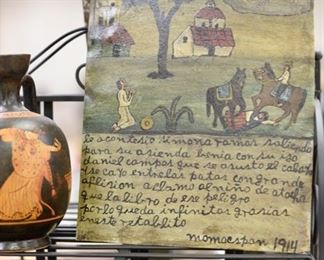 le acontesio timona ramos saliendo
para su asienda benia con su ijo
daniel campos que se asusto el cabayo
y se cayo entrelas patas con grande
aflision aclamo al niño de atocha
que lo libro de ese peligro
por lo queda infinitas grasias
eneste retablito
momaxpan 1914